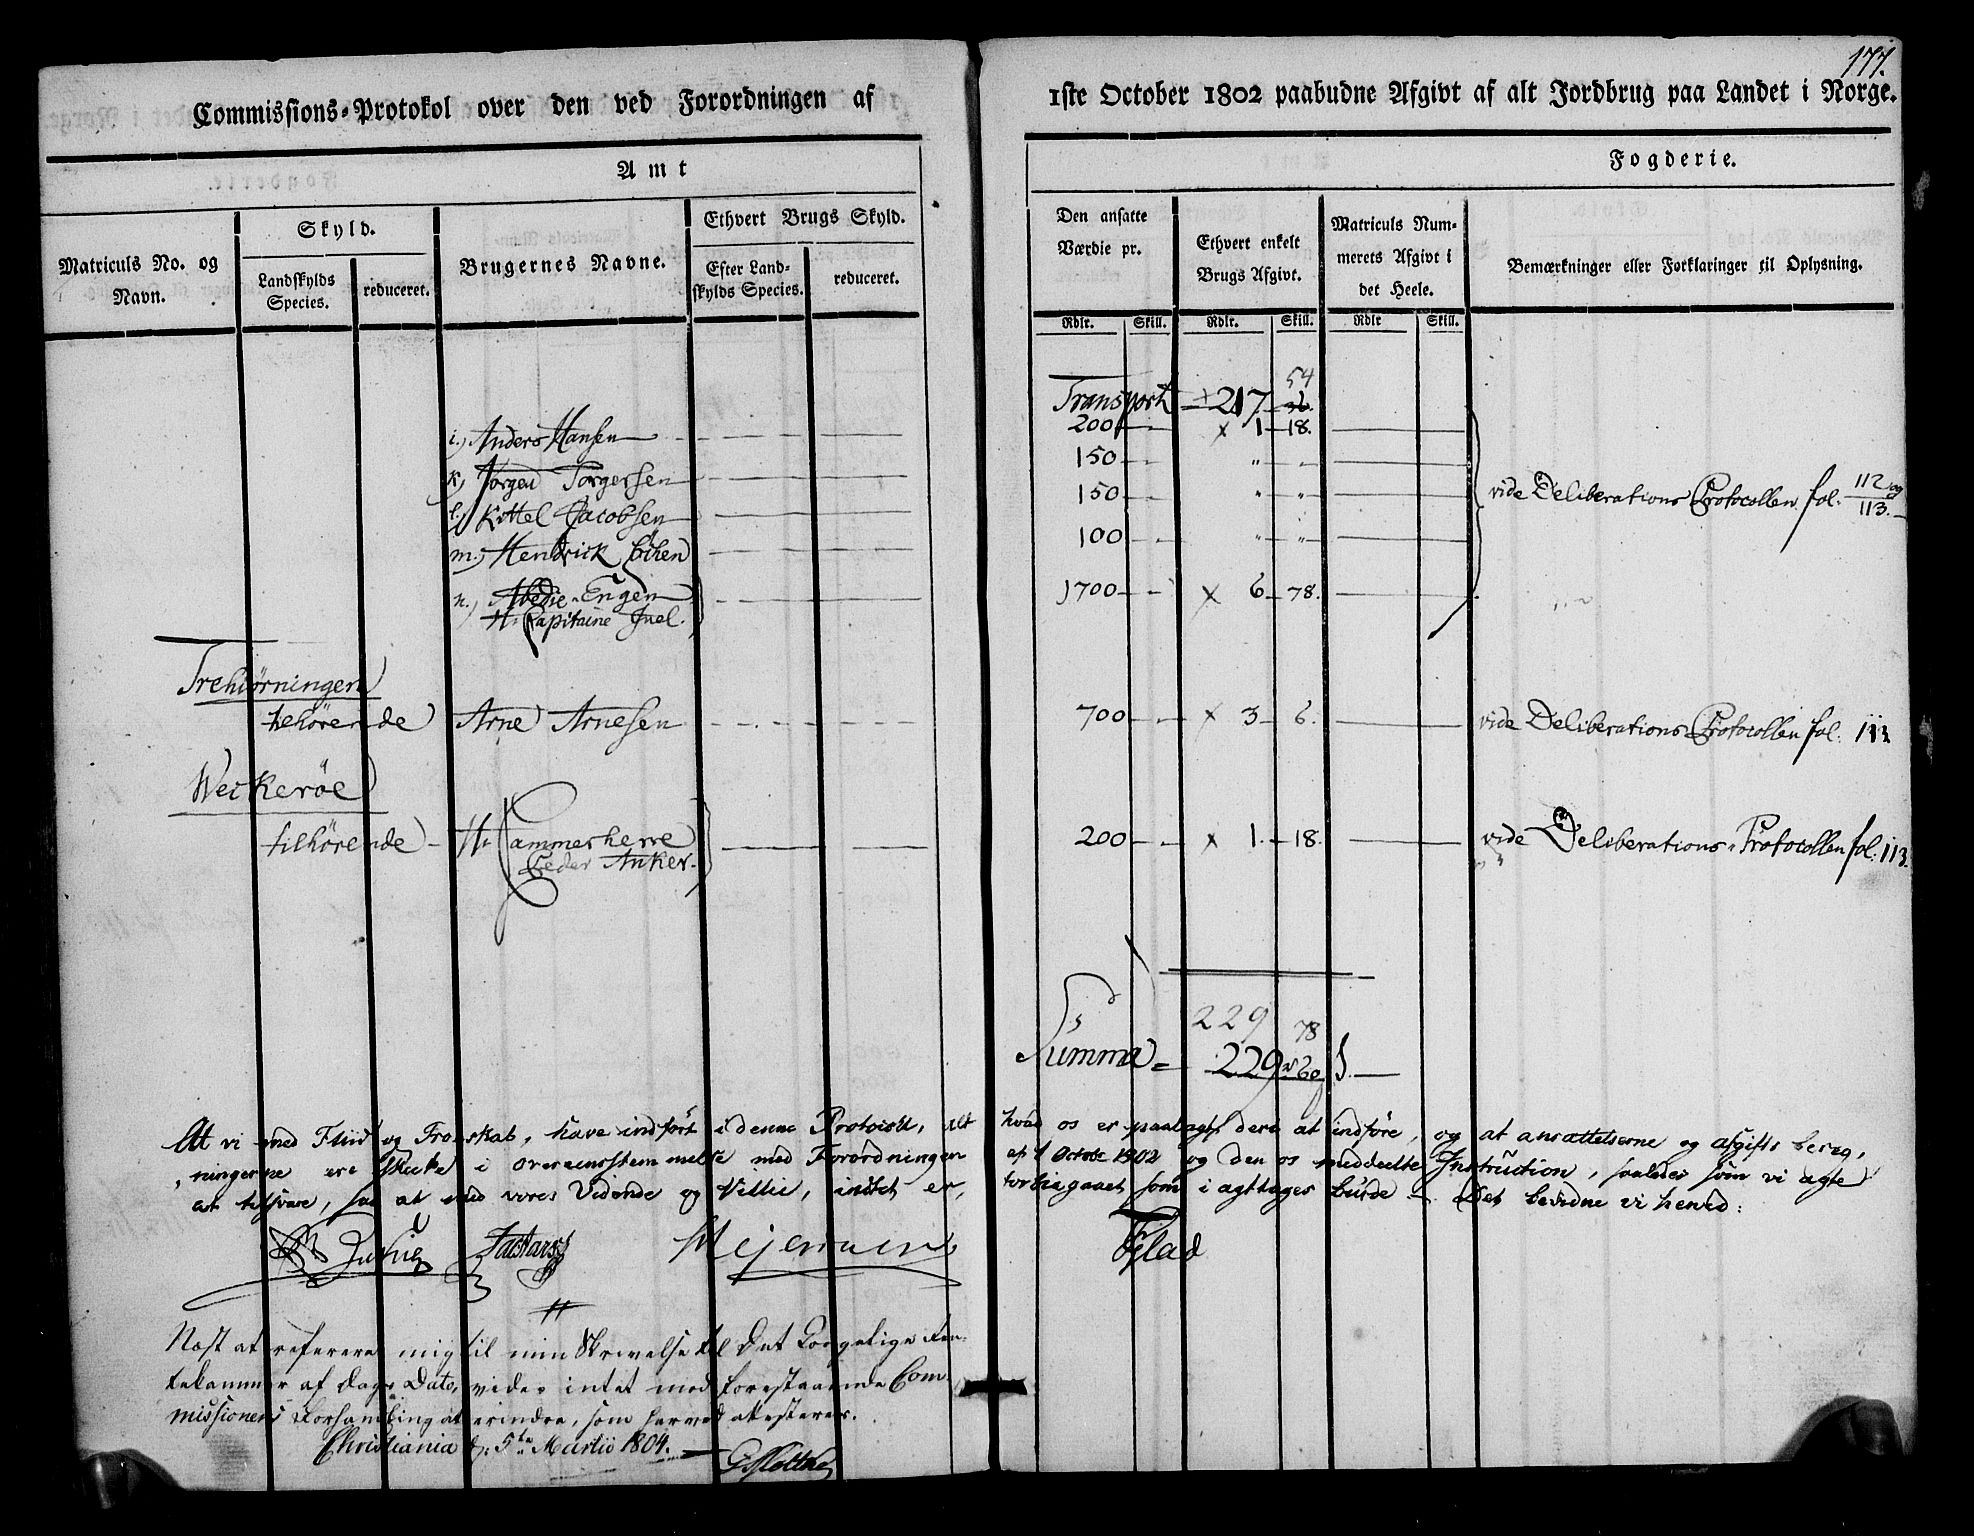 177.
Commissions-Protokol over den ved Forordningen af 1ste October 1802 paabudne Afgivt af alt Jordbrug paa Landet i Norge.
Amt
Fogderie.
Matriculs No. og Navn.
Skyld.
Landskylds Species.
reduceret.
Brugernes Navne.
Ethvert Brugs Skyld.
Efter Land-
skylds Species.
reduceret.
Den ansatte Værdie pr.
Ethvert enkelt Brugs Afgivt.
Matriculs Num-
merets Afgivt i det Heele.
Bemærkninger eller Forklaringer til Oplysning.
Rdlr. Skill. Rdlr. Skill. Rdlr Skill.
54
Transport 217 36.
i.) Anders Hansen 200 x 1 18.
k.) Jørgen Torgersen 150 " "
l.) Kittel Jacobsen 150 " "
vide Deliberations Protocollen fol. 112 og 113.
m.) Hendrick Eihen 100 " "
n.) Abedie-Engen 1700 x 6 78.
Hr. Capitaine Juel.
Trehiørningen
tilhørende Arne Arnesen 700 x 3 6. vide Deliberations Protocollen fol. 113
Weckerøe
tilhørende Hr Cammerherre 200 x 1. 18. vide Deliberations-Protocollen fol. 113.
Peder Anker.
229 78
Summa = 229 60
At vi med Fliid og Troeskab, have indført i denne Protocoll, alt hvad os er paalagt deri at indføre, og at ansættelserne og afgifts bereg,
ningerne ere skeede i overeensstemmelse med Forordningen af 1 Octobr 1802 og den os meddeelte Instruction, saaledes som vi agte
at tilsvare, saa at med vores Vidende og Villie, intet er, forbigaaet som i agttages burde - Det bevidne vi herved:
Mejermen Fylad
Næst at referere mig til min Skrivelse til Det Kongelige Ren-
tekammer af Dags Dato, vides intet mod forestaaende Com-
missionens Forhandling at erindre, som herved attesteres.
Christiania d. 5te Martii 1804.